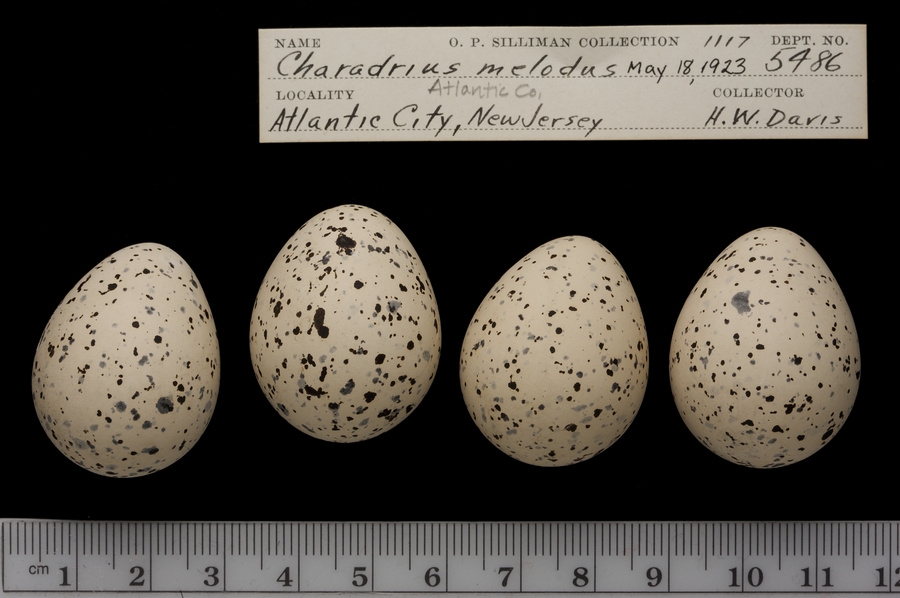 NAME O. P. SILLIMAN COLLECTION 1117 DEPT. NO.
Charadrius melodus May 18, 1923 5486
LOCALITY Atlantic Co. COLLECTOR
Atlantic City, New Jersey H.W. Davis
cm 1 2 3 4 5 6 7 8 9 10 11 12